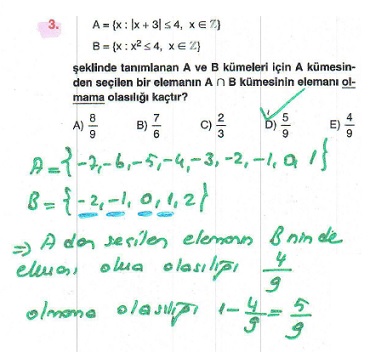 3. A = {x : |x + 3| ≤ 4, x ∈ ℤ}
B = {x : x² ≤ 4, x ∈ ℤ}
şeklinde tanımlanan A ve B kümeleri için A kümesin-
den seçilen bir elemanın A ∩ B kümesinin elemanı ol-
mama olasılığı kaçtır?
A) 8/9 B) 7/6 C) 2/3 D) 5/9 E) 4/9
A={-7,-6,-5,-4,-3,-2,-1,0,1}
B={-2,-1,0,1,2}
⇒ A dan seçilen elemanın B nin de
elemanı olma olasılığı 4/9
olmama olasılığı 1-4/9=5/9